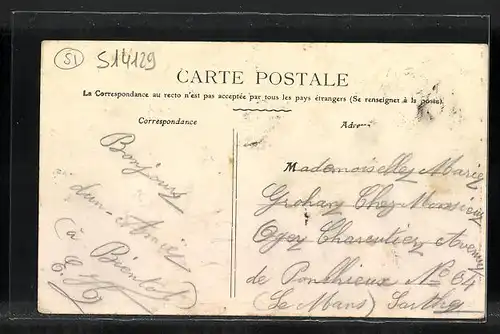 51
S14129
CARTE POSTALE
La Correspondance au recto n'est pas acceptée par tous les pays étrangers (Se renseigner à la poste)
Correspondance
Adre
Bonjour
d'un Amie
(à Bientôt)
Mademoiselle Marie
Chez Monsieur
Charcutier Avenue
de Ponthieux No 64
(Le Mans) Sarthe